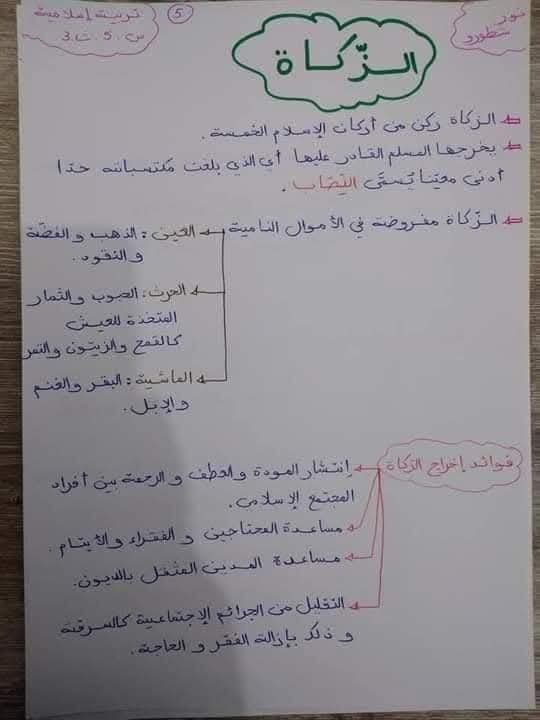 تربية إسلامية
س. 5. ث. 3
5
نور
شطورو
الـزّكاة
الزكاة ركن من أركان الإسلام الخمسة.
يخرجها المسلم القادر عليها أي الذي بلغت مكتسباته حدّا
أدنى معيّنا يُسمّى النّصاب.
الـزّكاة مفروضة في الأموال النامية
العين: الذهب والفضّة
والنقود.
الحرث: الحبوب والثمار
المتخذة للعيش
كالقمح والزيتون والتمر
الماشية: البقر والغنم
والإبل.
فوائد إخراج الزكاة
إنتشار المودة والعطف والرحمة بين أفراد
المجتمع الإسلامي.
مساعدة المحتاجين والفقراء والأيتام.
مساعدة المدين المثقل بالديون.
التقليل من الجرائم الإجتماعية كالسرقة
وذلك بإزالة الفقر والحاجة.